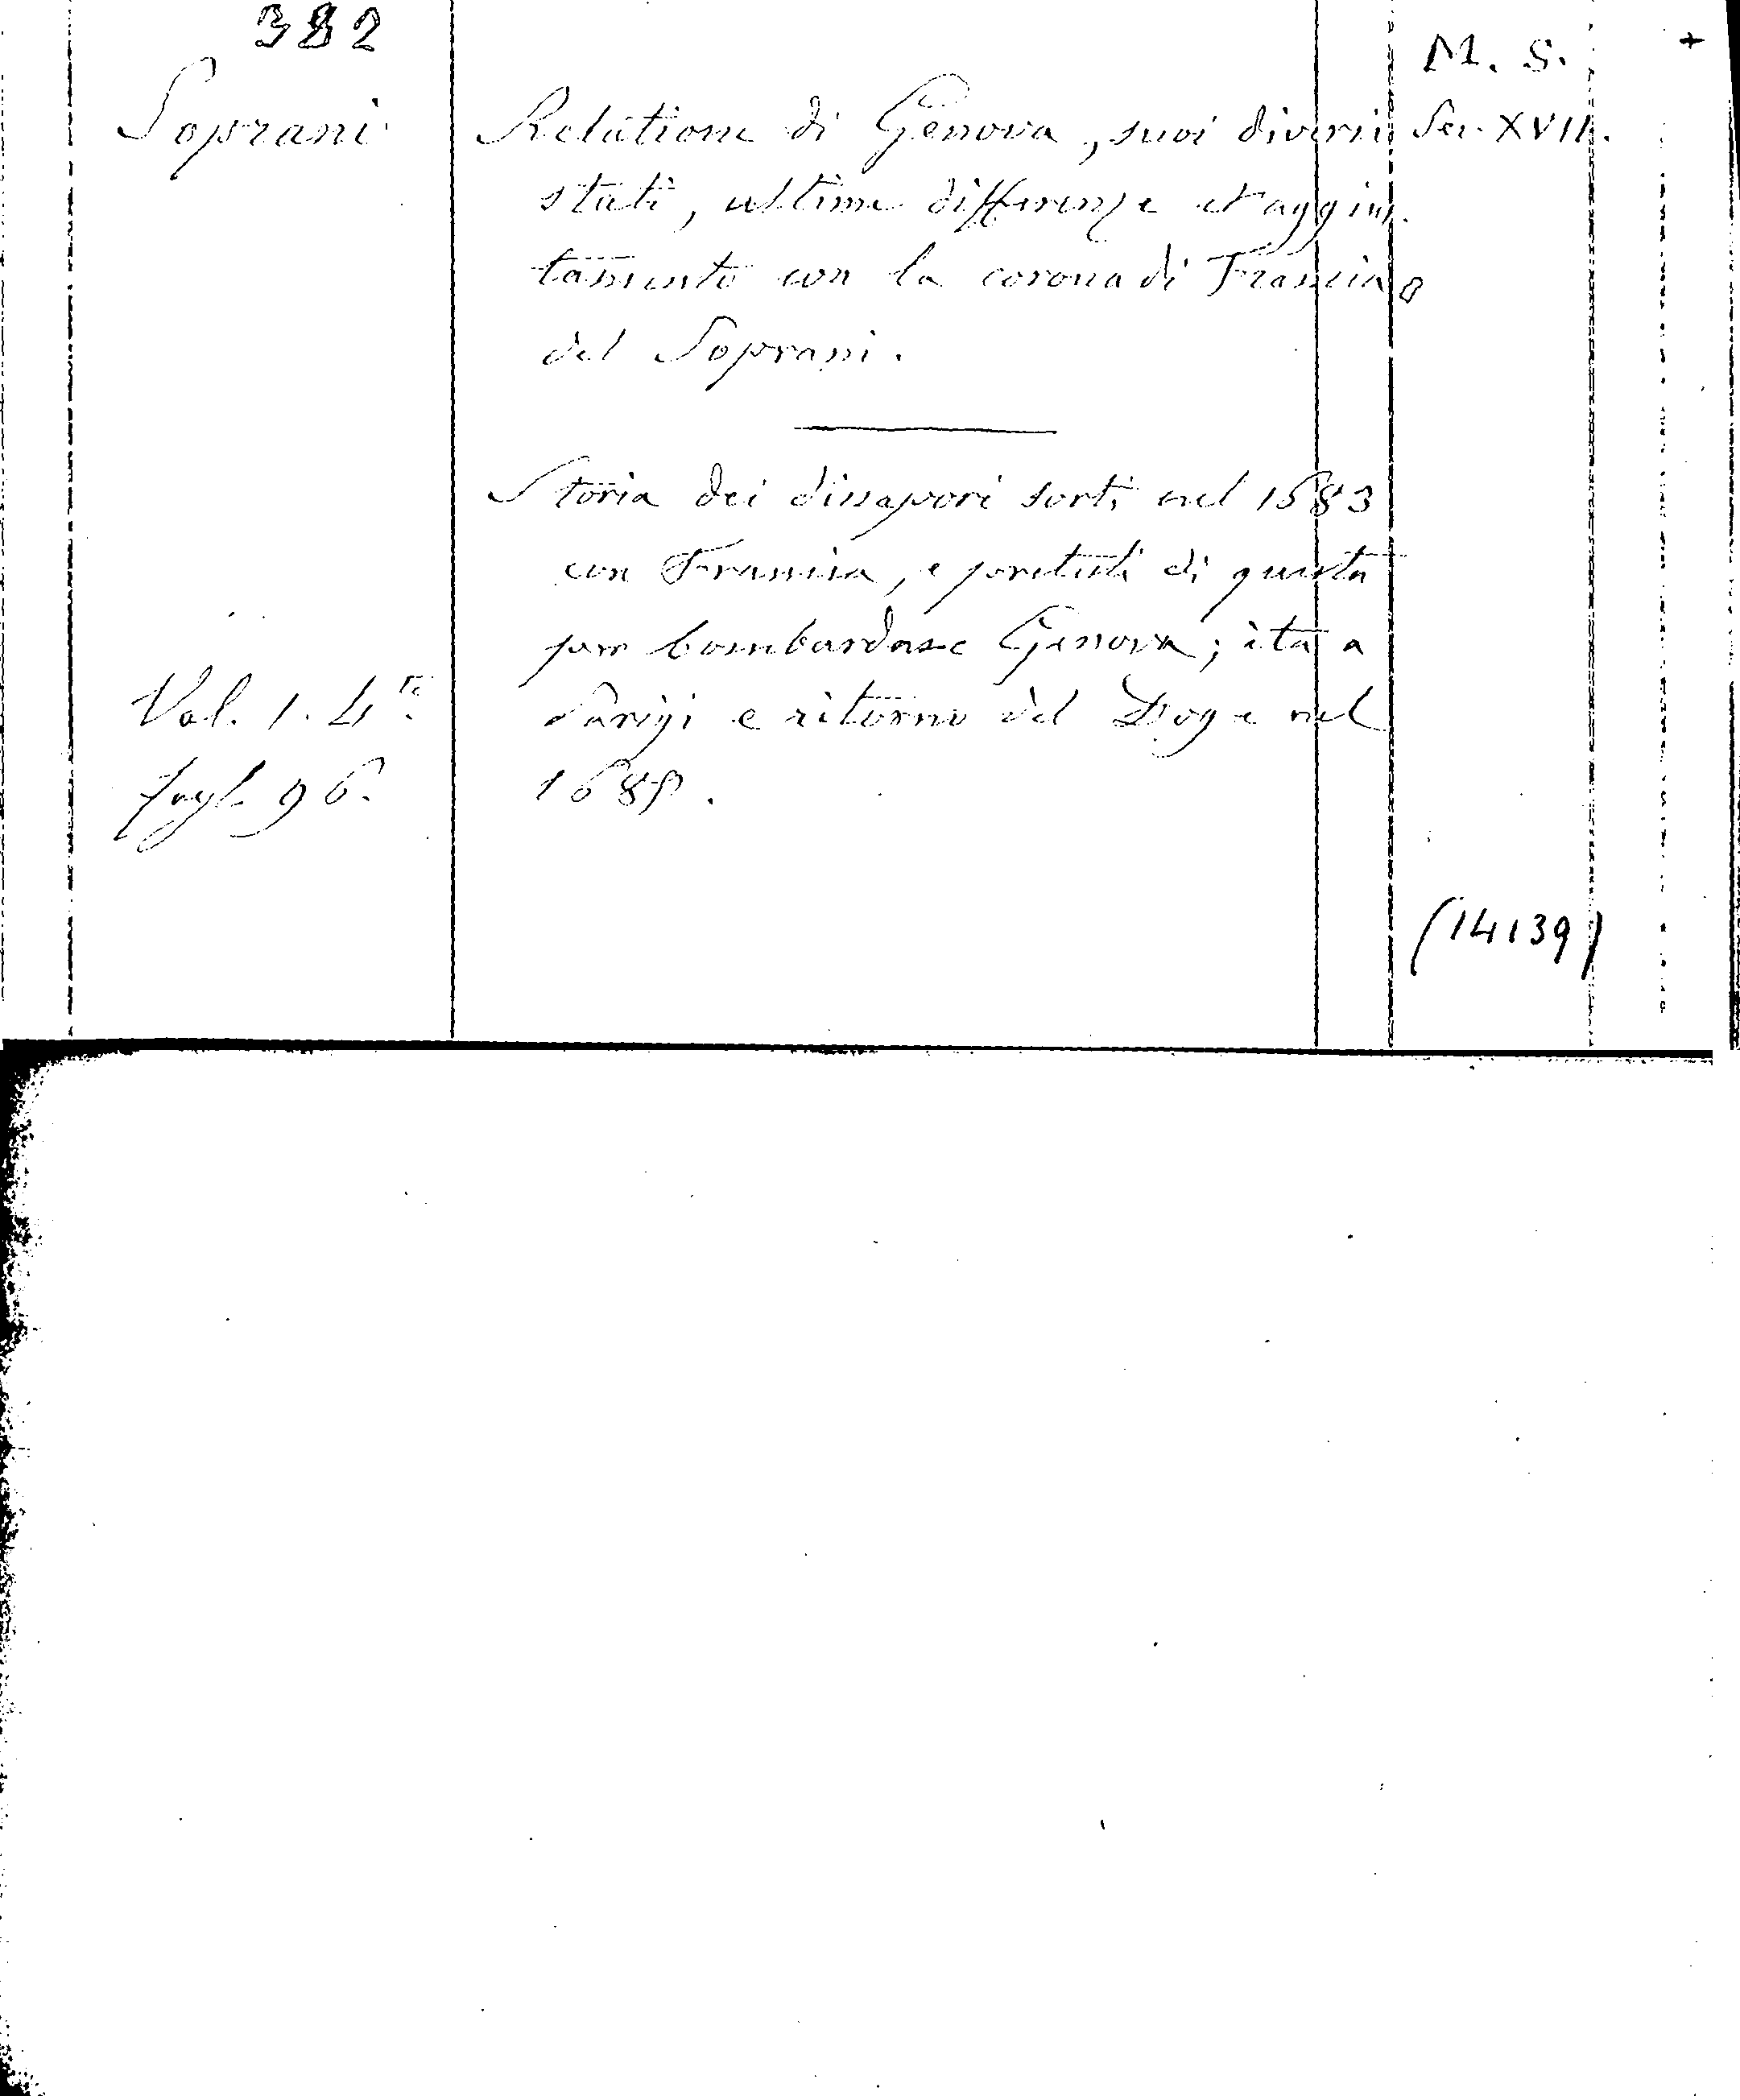 382
M. S. +
Soprani
Relatione di Genova, suoi diversi
Sec. XVII.
stati, ultime differenze et aggius-
tamento con la corona di Francia
del Soprani.
Storia dei dissapori sorti nel 1683
con Francia, e pretesti di questa
per bombardare Genova; ita a
Parigi e ritorno del Doge nel
1685.
Vol. 1. 4to.
fogl. 96.
(14139)